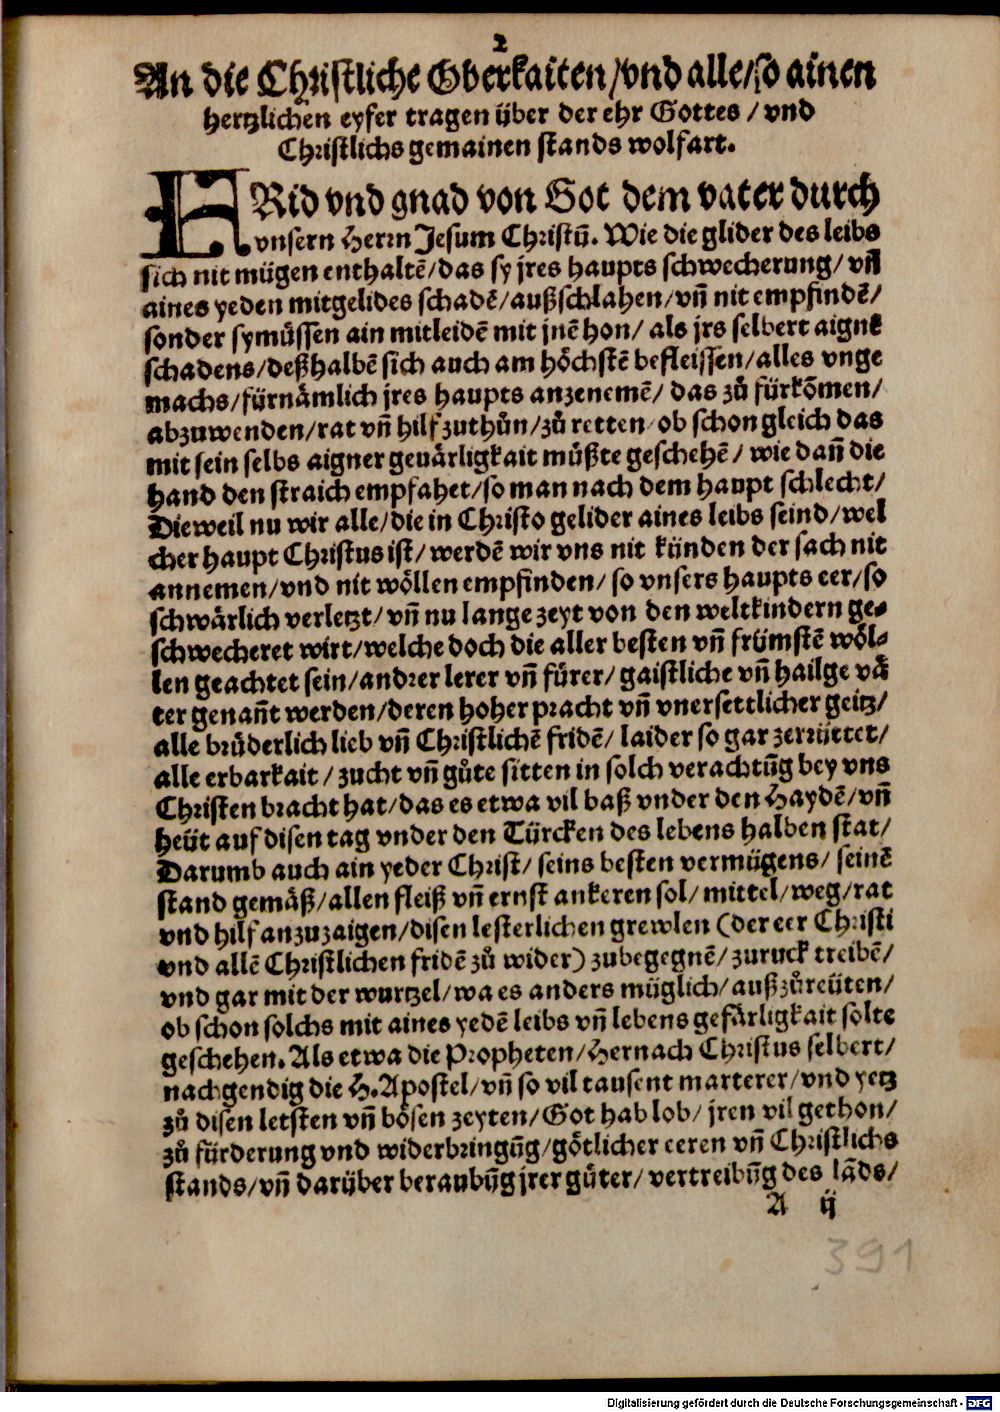 2
An die Christliche Oberkaiten/vnd alle/so ainen
hertzlichen eyfer tragen über der ehr Gottes/vnd
Christlichs gemainen stands wolfart.
FRid vnd gnad von Got dem vater durch
vnsern Herrn Jesum Christū. Wie die glider des leibs
sich nit mügen enthaltē/das sy jres haupts schwecherung/vñ
aines yeden mitgelides schadē/außschlahen/vñ nit empfindē/
sonder symüssen ain mitleidē mit jnē hon/als jrs selbert aignē
schadens/deßhalbē sich auch am höchstē befleissen/alles vnge
machs/fürnämlich jres haupts anzenemē/das zů fürkōmen/
abzuwenden/rat vñ hilf zuthůn/zů retten/ob schon gleich das
mit sein selbs aigner geuärligkait müßte geschehē/wie dañ die
hand den straich empfahet/so man nach dem haupt schlecht/
Dieweil nu wir alle/die in Christo gelider aines leibs seind/wel
cher haupt Christus ist/werdē wir vns nit künden der sach nit
annemen/vnd nit wöllen empfinden/so vnsers haupts eer/so
schwärlich verletzt/vñ nu lange zeyt von den weltkindern ge-
schwecheret wirt/welche doch die aller besten vñ frümstē wöl-
len geachtet sein/andrer lerer vñ fürer/gaistliche vñ hailge vä
ter genañt werden/deren hoher pracht vñ vnersettlicher geitz/
alle brüderlich lieb vñ Christlichē fridē/laider so gar zerrüttet/
alle erbarkait/zucht vñ gůte sitten in solch verachtūg bey vns
Christen bracht hat/das es etwa vil baß vnder den Haydē/vñ
heüt auf disen tag vnder den Türcken des lebens halben stat/
Darumb auch ain yeder Christ/seins besten vermügens/seinē
stand gemäß/allen fleiß vñ ernst ankeren sol/mittel/weg/rat
vnd hilf anzuzaigen/disen lesterlichen grewlen (der eer Christi
vnd allē Christlichen fridē zů wider) zubegegnē/zuruck treibē/
vnd gar mit der wurtzel/wa es anders müglich/außzůreüten/
ob schon solchs mit aines yedē leibs vñ lebens gefärligkait solte
geschehen. Als etwa die Propheten/Hernach Christus selbert/
nachgendig die H. Apostel/vñ so vil tausent marterer/vnd yetz
zů disen letsten vñ bösen zeyten/Got hab lob/jren vil gethon/
zů fürderung vnd widerbringūg/götlicher eeren vñ Christlichs
stands/vñ darüber beraubūg jrer güter/vertreibūg des lāds/
A ij
391
Digitalisierung gefördert durch die Deutsche Forschungsgemeinschaft - DFG